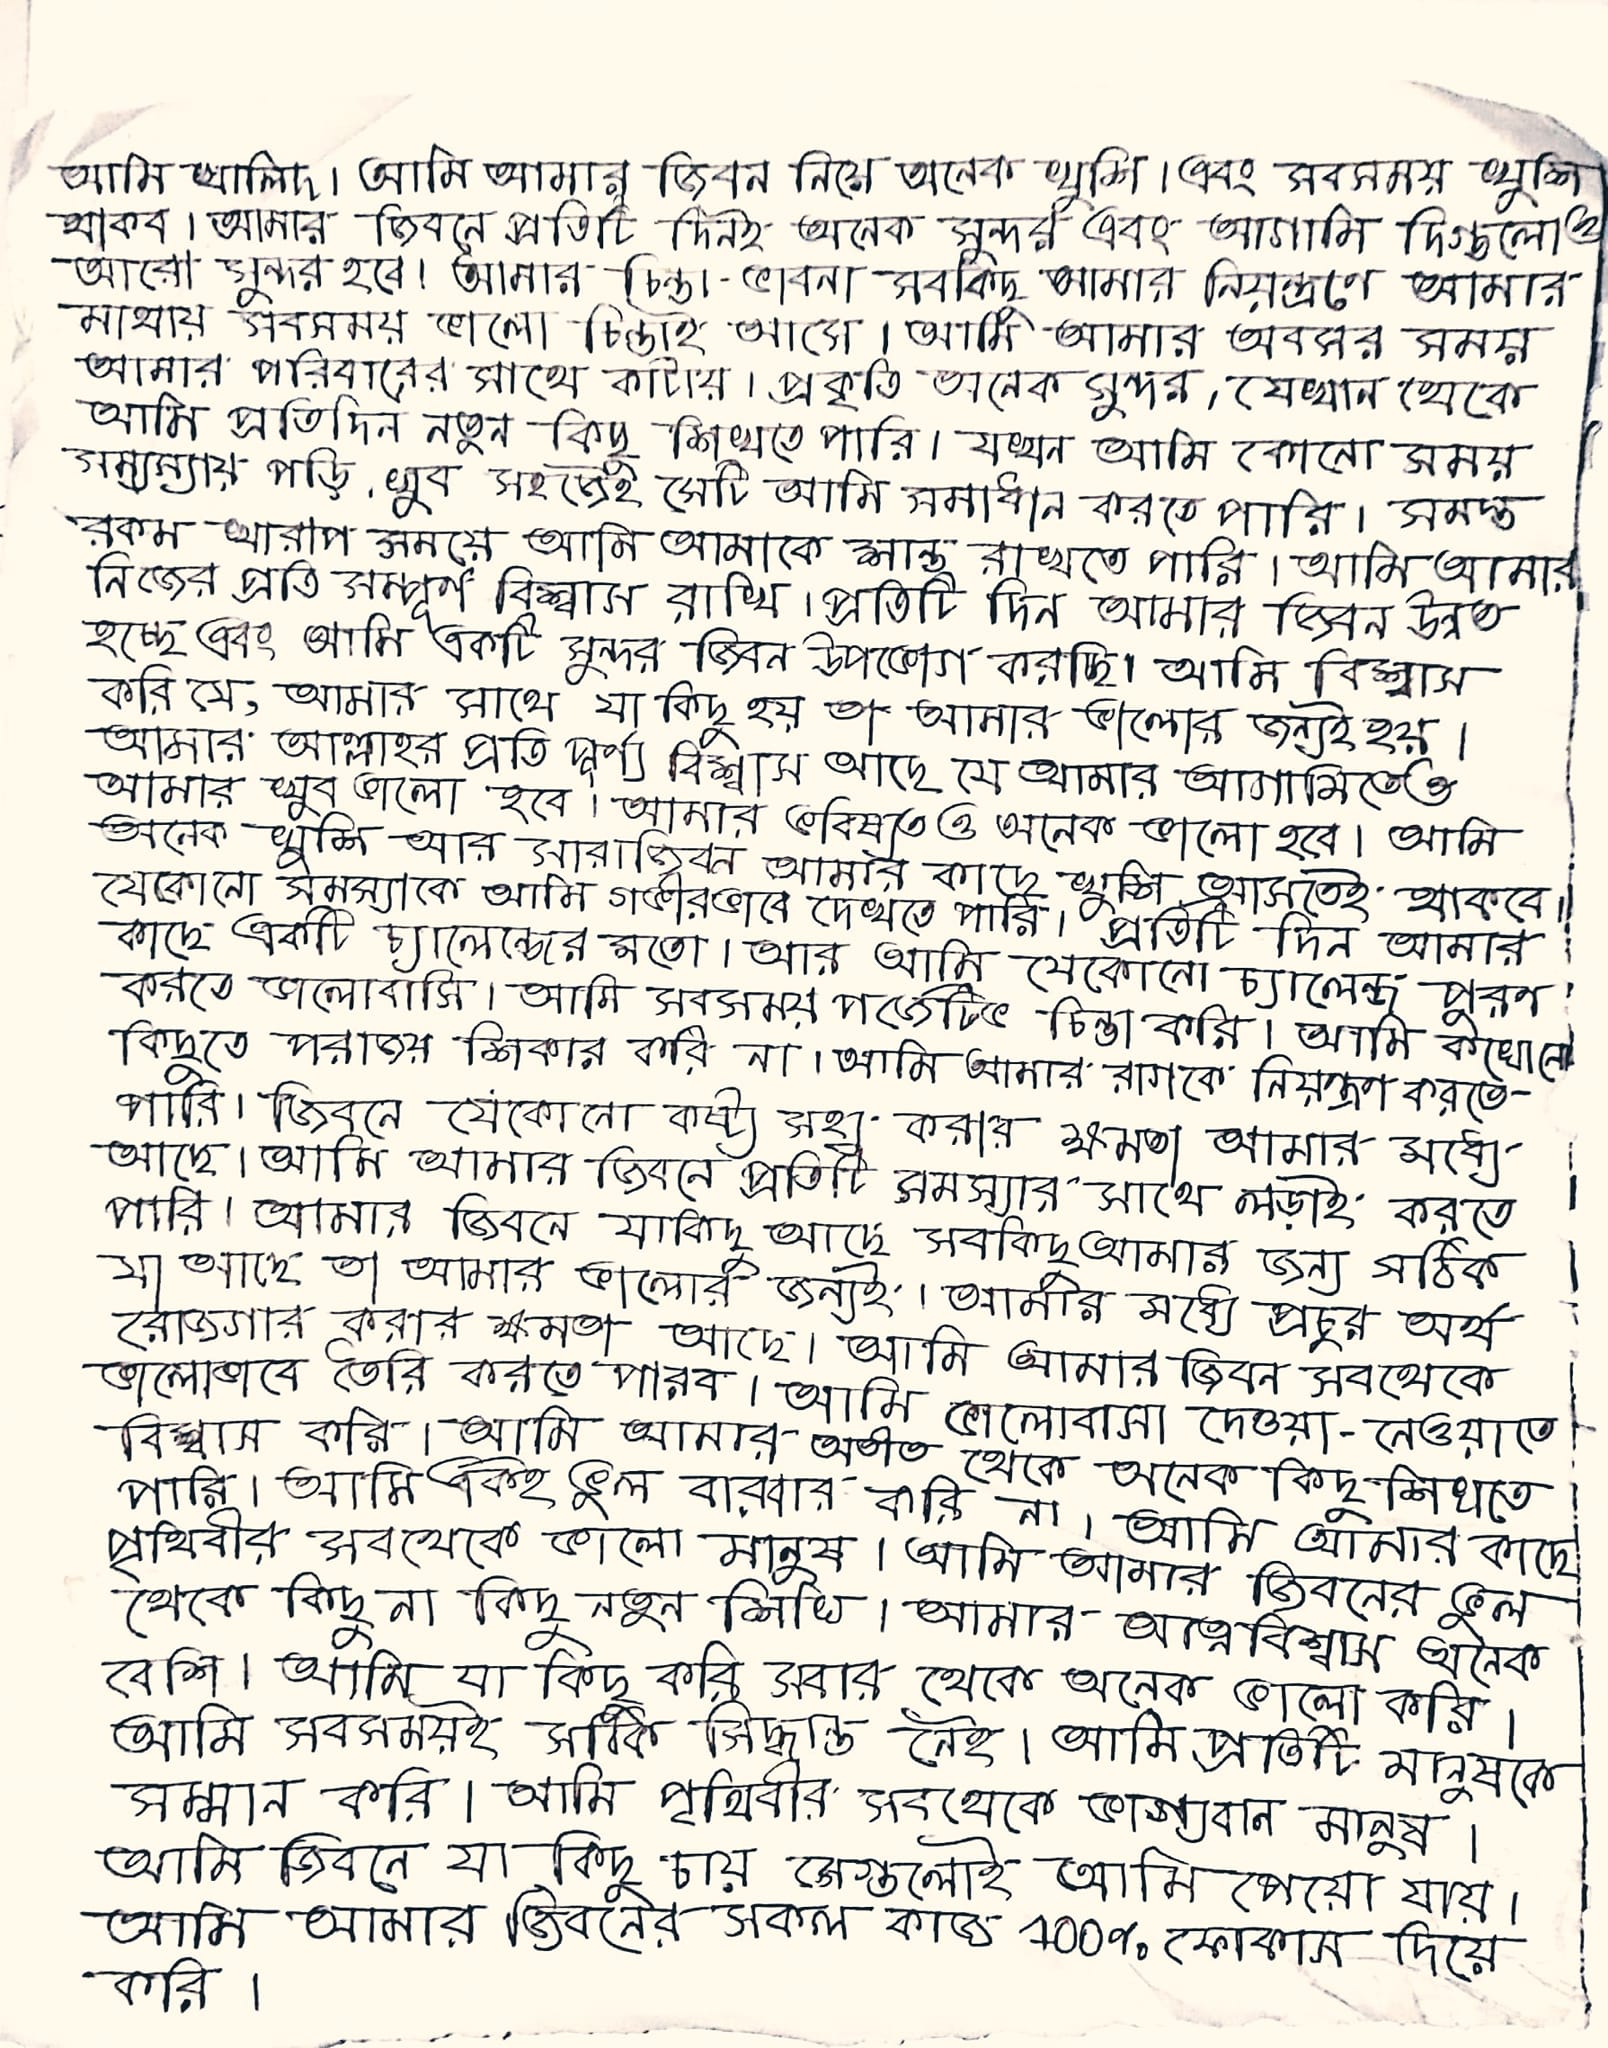 আমি খালিদ। আমি আমার জিবন নিয়ে অনেক খুশি। এবং সবসময় খুশি
থাকব। আমার জিবনে প্রতিটি দিনই অনেক সুন্দর এবং আগামি দিগুলোও
আরো সুন্দর হবে। আমার চিন্তা-ভাবনা সবকিছু আমার নিয়ন্ত্রণে আমার
মাথায় সবসময় ভালো চিন্তাই আসে। আমি আমার অবসর সময়
আমার পরিবারের সাথে কাটায়। প্রকৃতি অনেক সুন্দর, যেখান থেকে
আমি প্রতিদিন নতুন কিছু শিখতে পারি। যখন আমি কোনো সময়
পড়ি, খুব সহজেই সেটি আমি সমাধান করতে পারি। সমস্ত
রকম খারাপ সময়ে আমি আমাকে শান্ত রাখতে পারি। আমি আমার
নিজের প্রতি সম্পূর্ণ বিশ্বাস রাখি। প্রতিটি দিন আমার জিবন উন্নত
হচ্ছে এবং আমি একটি সুন্দর জিবন উপভোগ করছি। আমি বিশ্বাস
করি যে, আমার সাথে যা কিছু হয় তা আমার ভালোর জন্যই হয়।
আমার আল্লাহর প্রতি বিশ্বাস আছে যে আমার আগামিতেও
আমার খুব ভালো হবে। আমার ভবিষ্যতও অনেক ভালো হবে। আমি
অনেক খুশি আর সারাজিবন আমার কাছে খুশি আসতেই থাকবে।
যেকোনো সমস্যাকে আমি গভীরভাবে দেখতে পারি। প্রতিটি দিন আমার
কাছে একটি চ্যালেন্জের মতো। আর আমি যেকোনো চ্যালেন্জ পুরণ
করতে ভালোবাসি। আমি সবসময় পজেটিভ চিন্তা করি। আমি কখোনো
কিছুতে পরাজয় শিকার করি না। আমি আমার রাগকে নিয়ন্ত্রণ করতে-
পারি। জিবনে যেকোনো কষ্ট্য সহ্য করার ক্ষমতা আমার মধ্যে
আছে। আমি আমার জিবনে প্রতিটি সমস্যার সাথে লড়াই করতে
পারি। আমার জিবনে যাকিছু আছে সবকিছু আমার জন্য সঠিক
যা আছে তা আমার ভালোর জন্যই। আমার মধ্যে প্রচুর অর্থ
রোজগার করার ক্ষমতা আছে। আমি আমার জিবন সবথেকে
ভালোভাবে তৈরি করতে পারব। আমি ভালোবাসা দেওয়া-নেওয়াতে
বিশ্বাস করি। আমি আমার অতীত থেকে অনেক কিছু শিখতে
পারি। আমি একই ভুল বারবার করি না। আমি আমার কাছে
পৃথিবীর সবথেকে ভালো মানুষ। আমি আমার জিবনের ভুল
থেকে কিছু না কিছু নতুন শিখি। আমার আত্নবিশ্বাস অনেক
বেশি। আমি যা কিছু করি সবার থেকে অনেক ভালো করি।
আমি সবসময়ই সঠিক সিদ্ধান্ত নেই। আমি প্রতিটি মানুষকে
সম্মান করি। আমি পৃথিবীর সবথেকে ভাগ্যবান মানুষ।
আমি জিবনে যা কিছু চায় সেগুলোই আমি পেয়ো যায়।
আমি আমার জিবনের সকল কাজ 100% ফোকাস দিয়ে
করি।